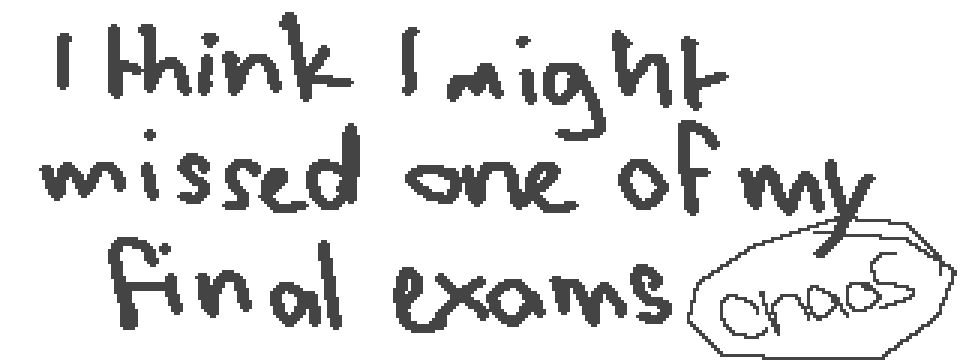 I think I might
missed one of my
final exams
chaos